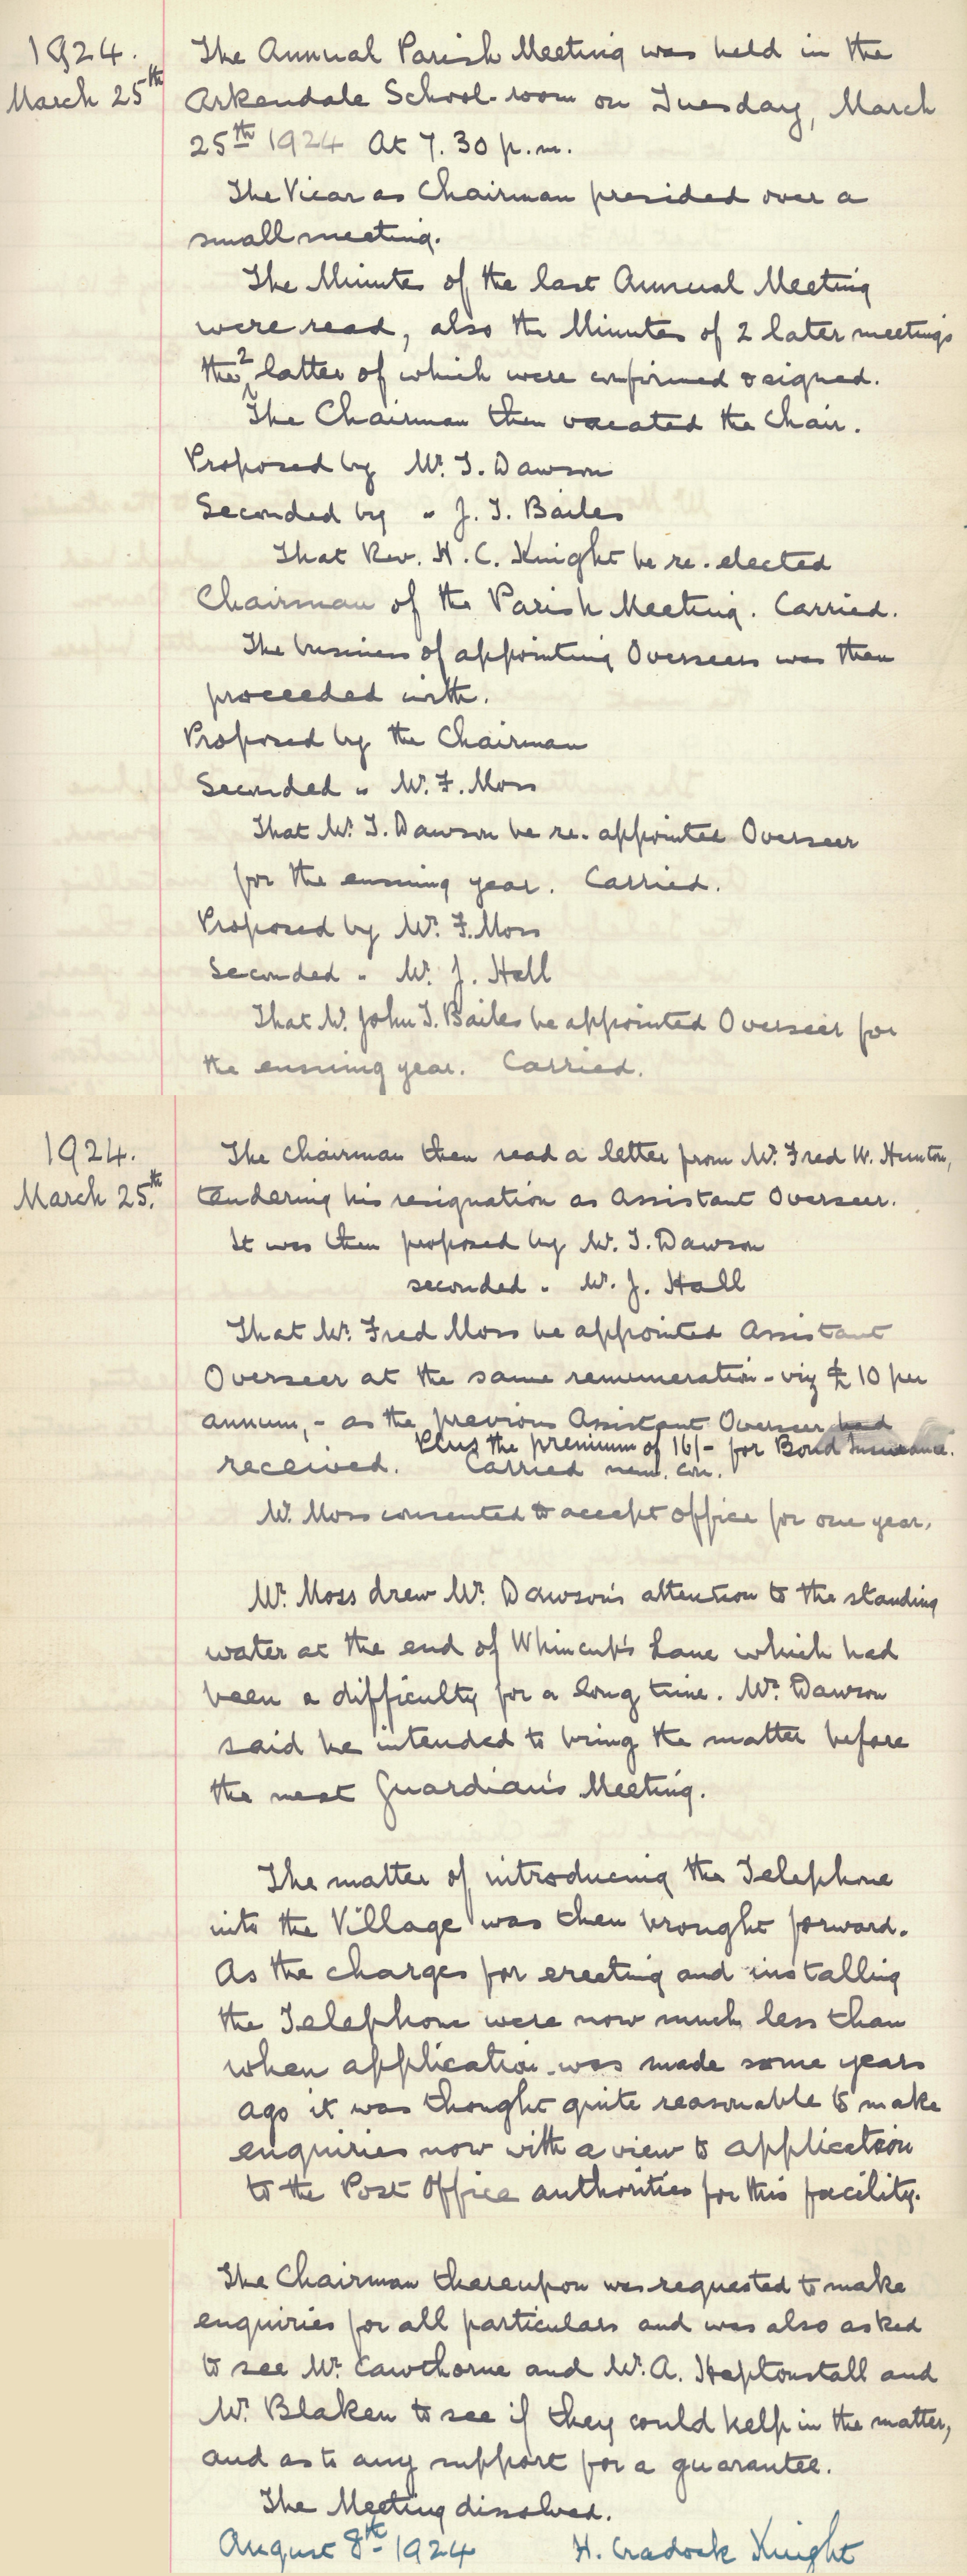 1924.
March 25th
The Annual Parish Meeting was held in the
Arkendale School-room on Tuesday, March
25th 1924 At 7.30 p.m.
The Vicar as Chairman presided over a
small meeting.
The Minutes of the last Annual Meeting
were read, also the Minutes of 2 later meetings
the 2 latter of which were confirmed & signed.
The Chairman then vacated the Chair.
Proposed by Mr. T. Dawson
Seconded by " J. T. Bailes
That Rev. H. C. Knight be re-elected
Chairman of the Parish Meeting. Carried.
The business of appointing Overseers was then
proceeded with.
Proposed by the Chairman
Seconded " Mr. F. Moss
That Mr. T. Dawson be re-appointed Overseer
for the ensuing year. Carried.
Proposed by Mr. F. Moss
Seconded " Mr. J. Hall
That Mr. John T. Bailes be appointed Overseer for
the ensuing year. Carried.
1924.
March 25th.
The Chairman then read a letter from Mr. Fred W. Hunton,
tendering his resignation as Assistant Overseer.
It was then proposed by Mr. T. Dawson
seconded " Mr. J. Hall
That Mr. Fred Moss be appointed Assistant
Overseer at the same remuneration - viz £10 per
annum, - as the previous Assistant Overseer had
Plus the premium of 16/- for Bond Insurance.
received. Carried nem. con.
Mr. Moss consented to accept office for one year.
Mr. Moss drew Mr. Dawson's attention to the standing
water at the end of Whincup's Lane which had
been a difficulty for a long time. Mr. Dawson
said he intended to bring the matter before
the next Guardian's Meeting.
The matter of introducing the Telephone
into the Village was then brought forward.
As the charges for erecting and installing
the Telephone were now much less than
when application was made some years
ago it was thought quite reasonable to make
enquiries now with a view to application
to the Post Office authorities for this facility.
The Chairman thereupon was requested to make
enquiries for all particulars and was also asked
to see Mr. Cawthorne and Mr. A. Heptonstall and
Mr. Blaken to see if they could help in the matter,
and as to any support for a guarantee.
The Meeting dissolved.
August 8th 1924 H. Cradock Knight